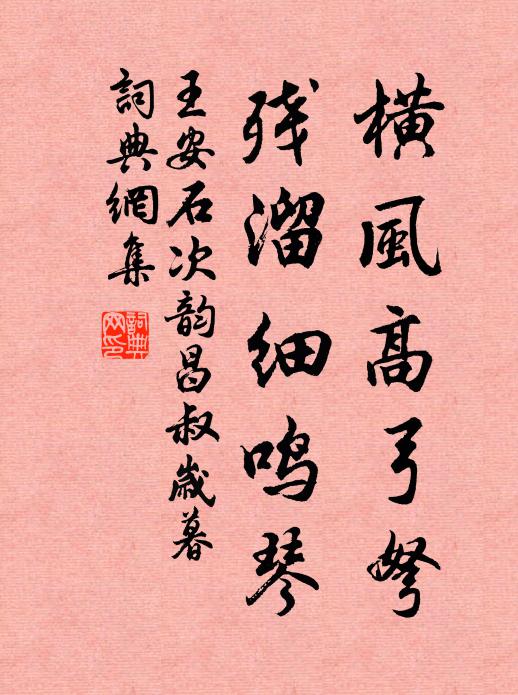 橫風高弓弩
殘溜細鳴琴
王安石次韵昌叔歲暮
詞典網集
詞典網印